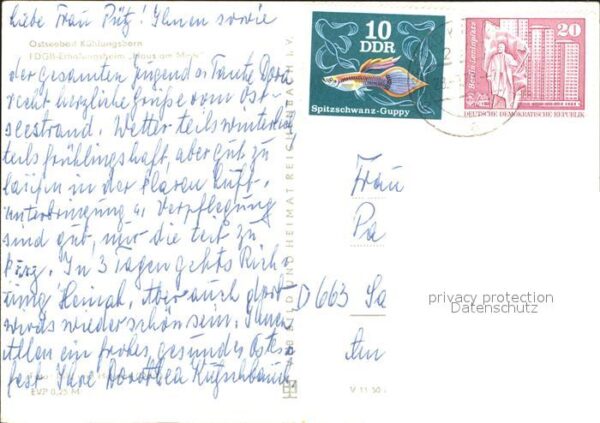 Liebe Frau Pütz! Ihnen sowie
Ostseebad Kühlungsborn
FDGB-Erholungsheim „Haus am Meer“
der gesamten Jugend u. Tante Dora
recht herzliche Grüße vom Ost-
seestrand. Wetter teils winterlich
teils frühlingshaft, aber gut zu
laufen in der klaren Luft.
Unterbringung u. Verpflegung
sind gut, nur die Zeit zu
kurz. In 3 Tagen gehts Rich-
tung Heimat. Aber auch dort
wirds wieder schön sein. Ihnen
Allen ein frohes, gesundes Oster-
fest Ihre Dorothea
EVP 0,25 M
BILD UND HEIMAT REICHENBACH I. V.
V 11 30
10
DDR
Spitzschwanz-Guppy
20
Berlin · Leninplatz
DEUTSCHE DEMOKRATISCHE REPUBLIK
Frau
Pa
D 663 Sa
Am
privacy protection
Datenschutz